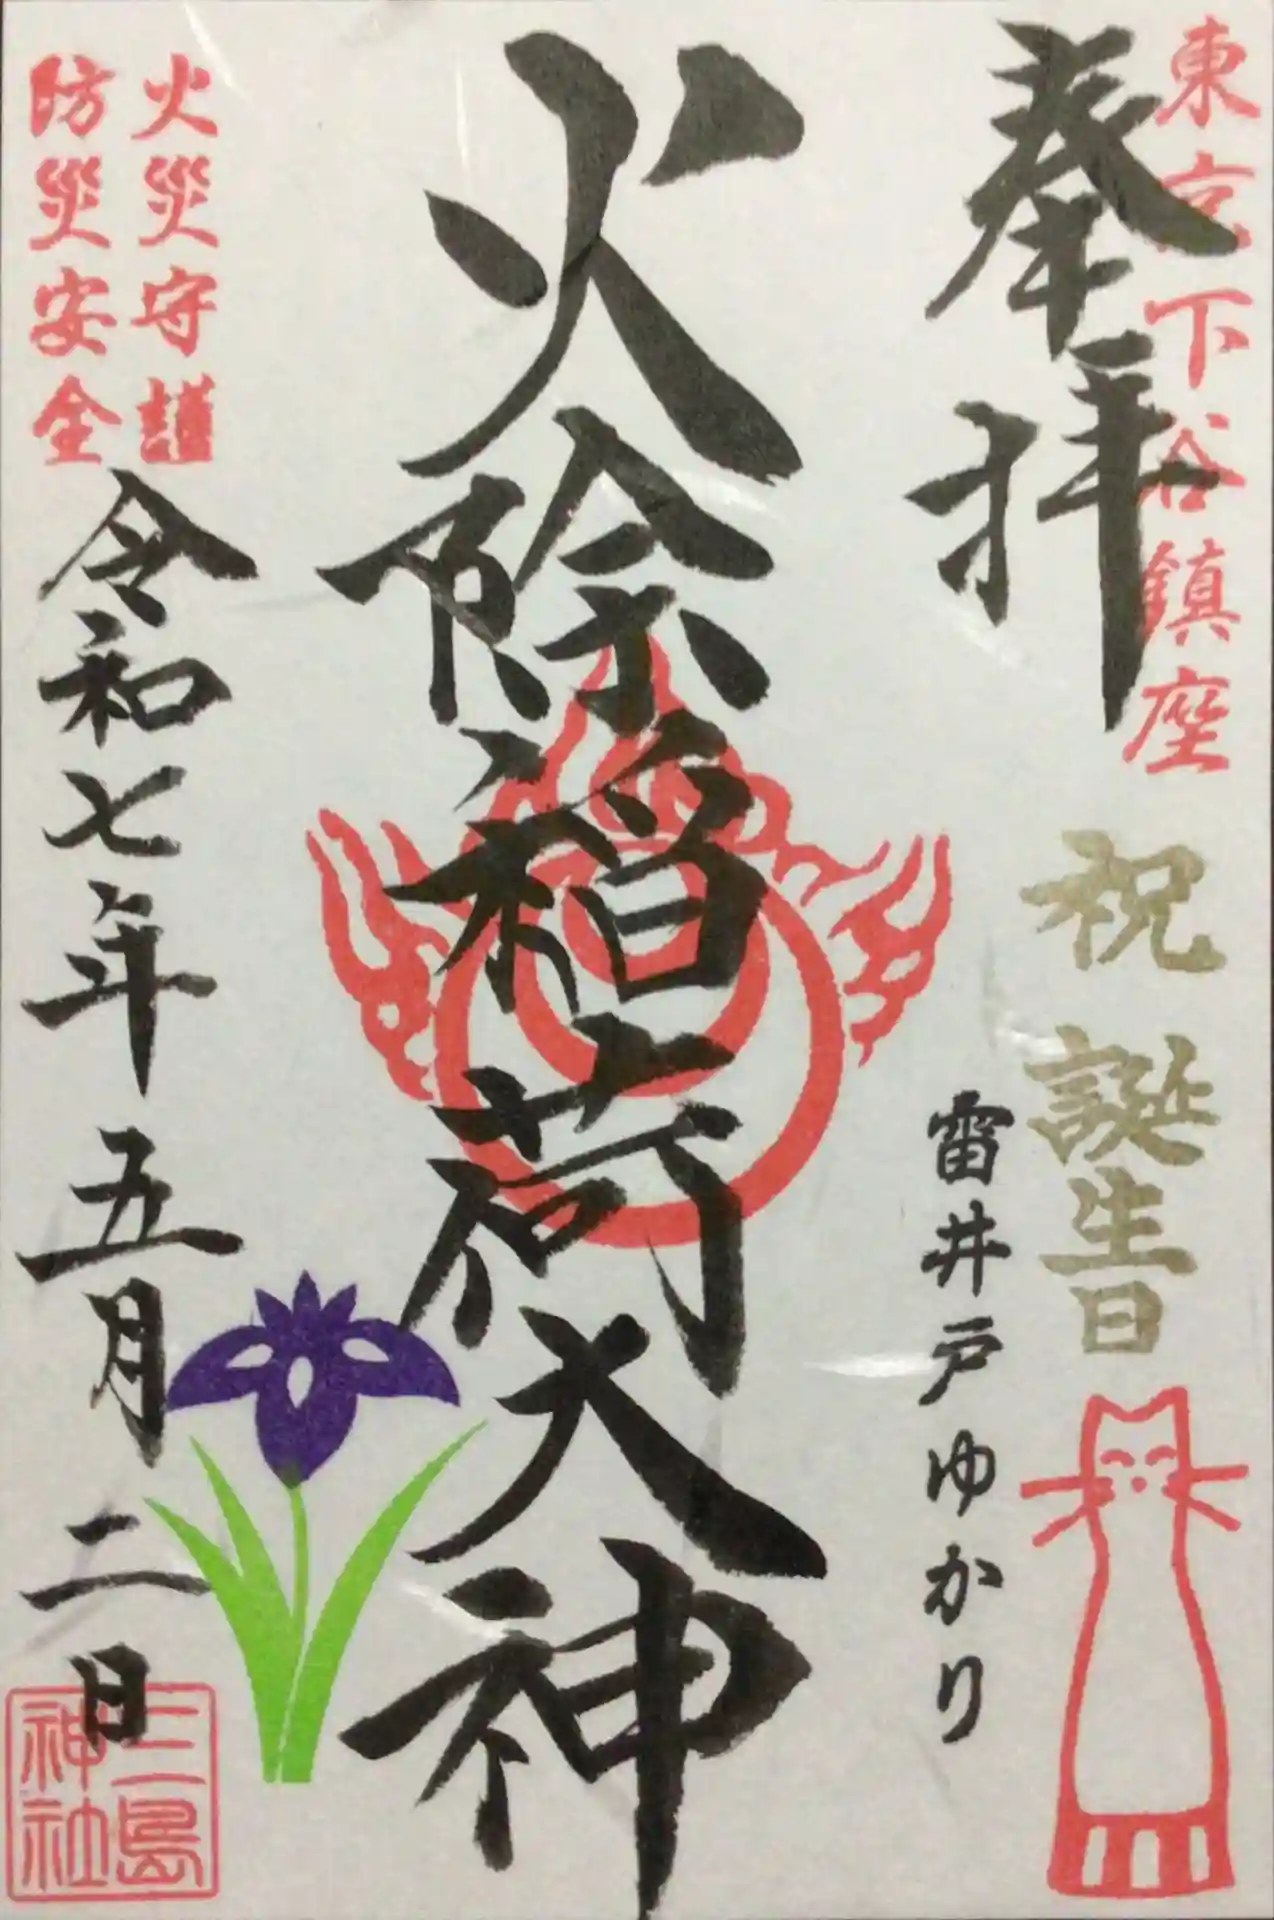 東京下谷鎮座
奉拝
祝 誕生日
雷井戸ゆかり
火除稲荷大神
火災守護
防災安全
令和七年五月二日
三島神社